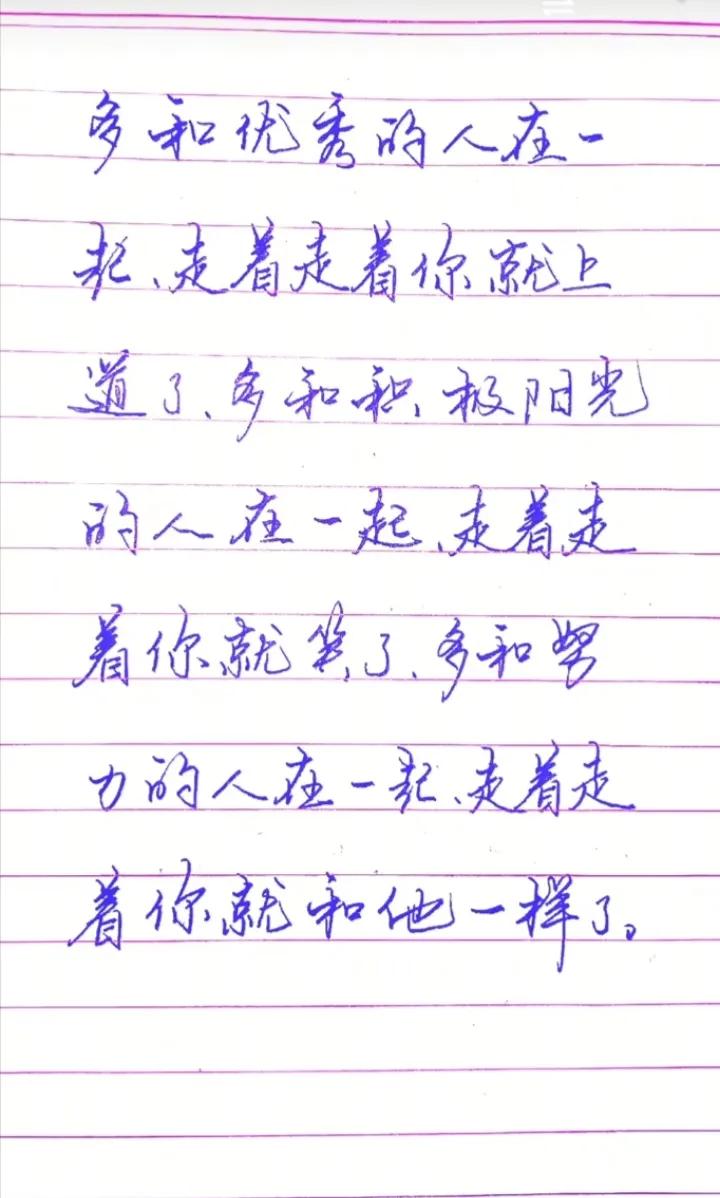 多和优秀的人在一
起、走着走着你就上
道了、多和积极阳光
的人在一起、走着走
着你就笑了、多和努
力的人在一起、走着走
着你就和他一样了。